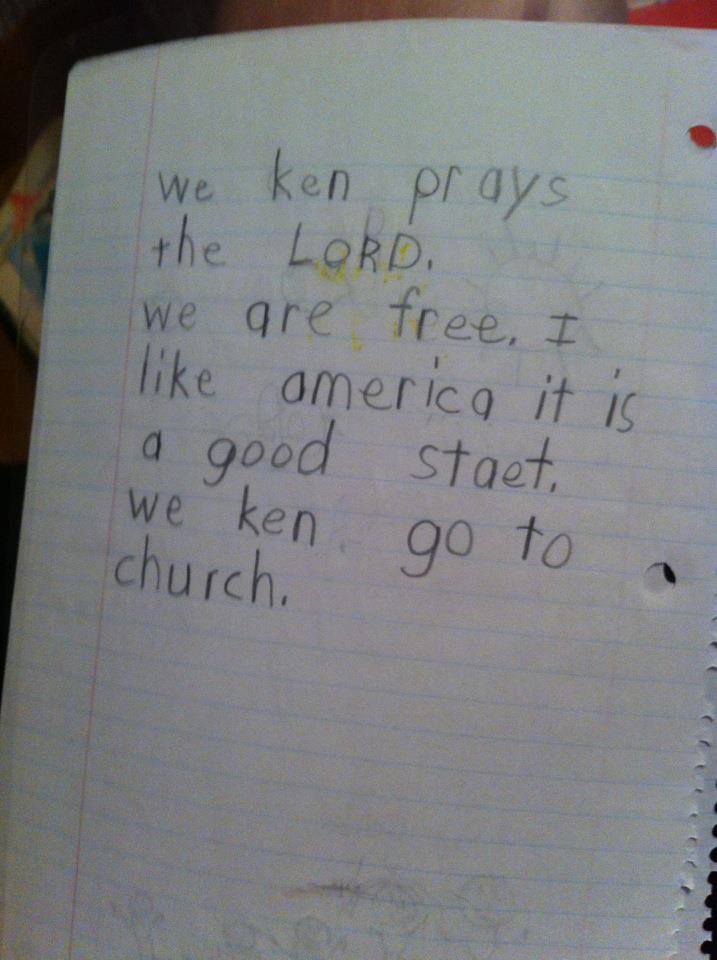 we ken prays
the LORD.
we are free. I
like america it is
a good staet.
we ken go to
church.